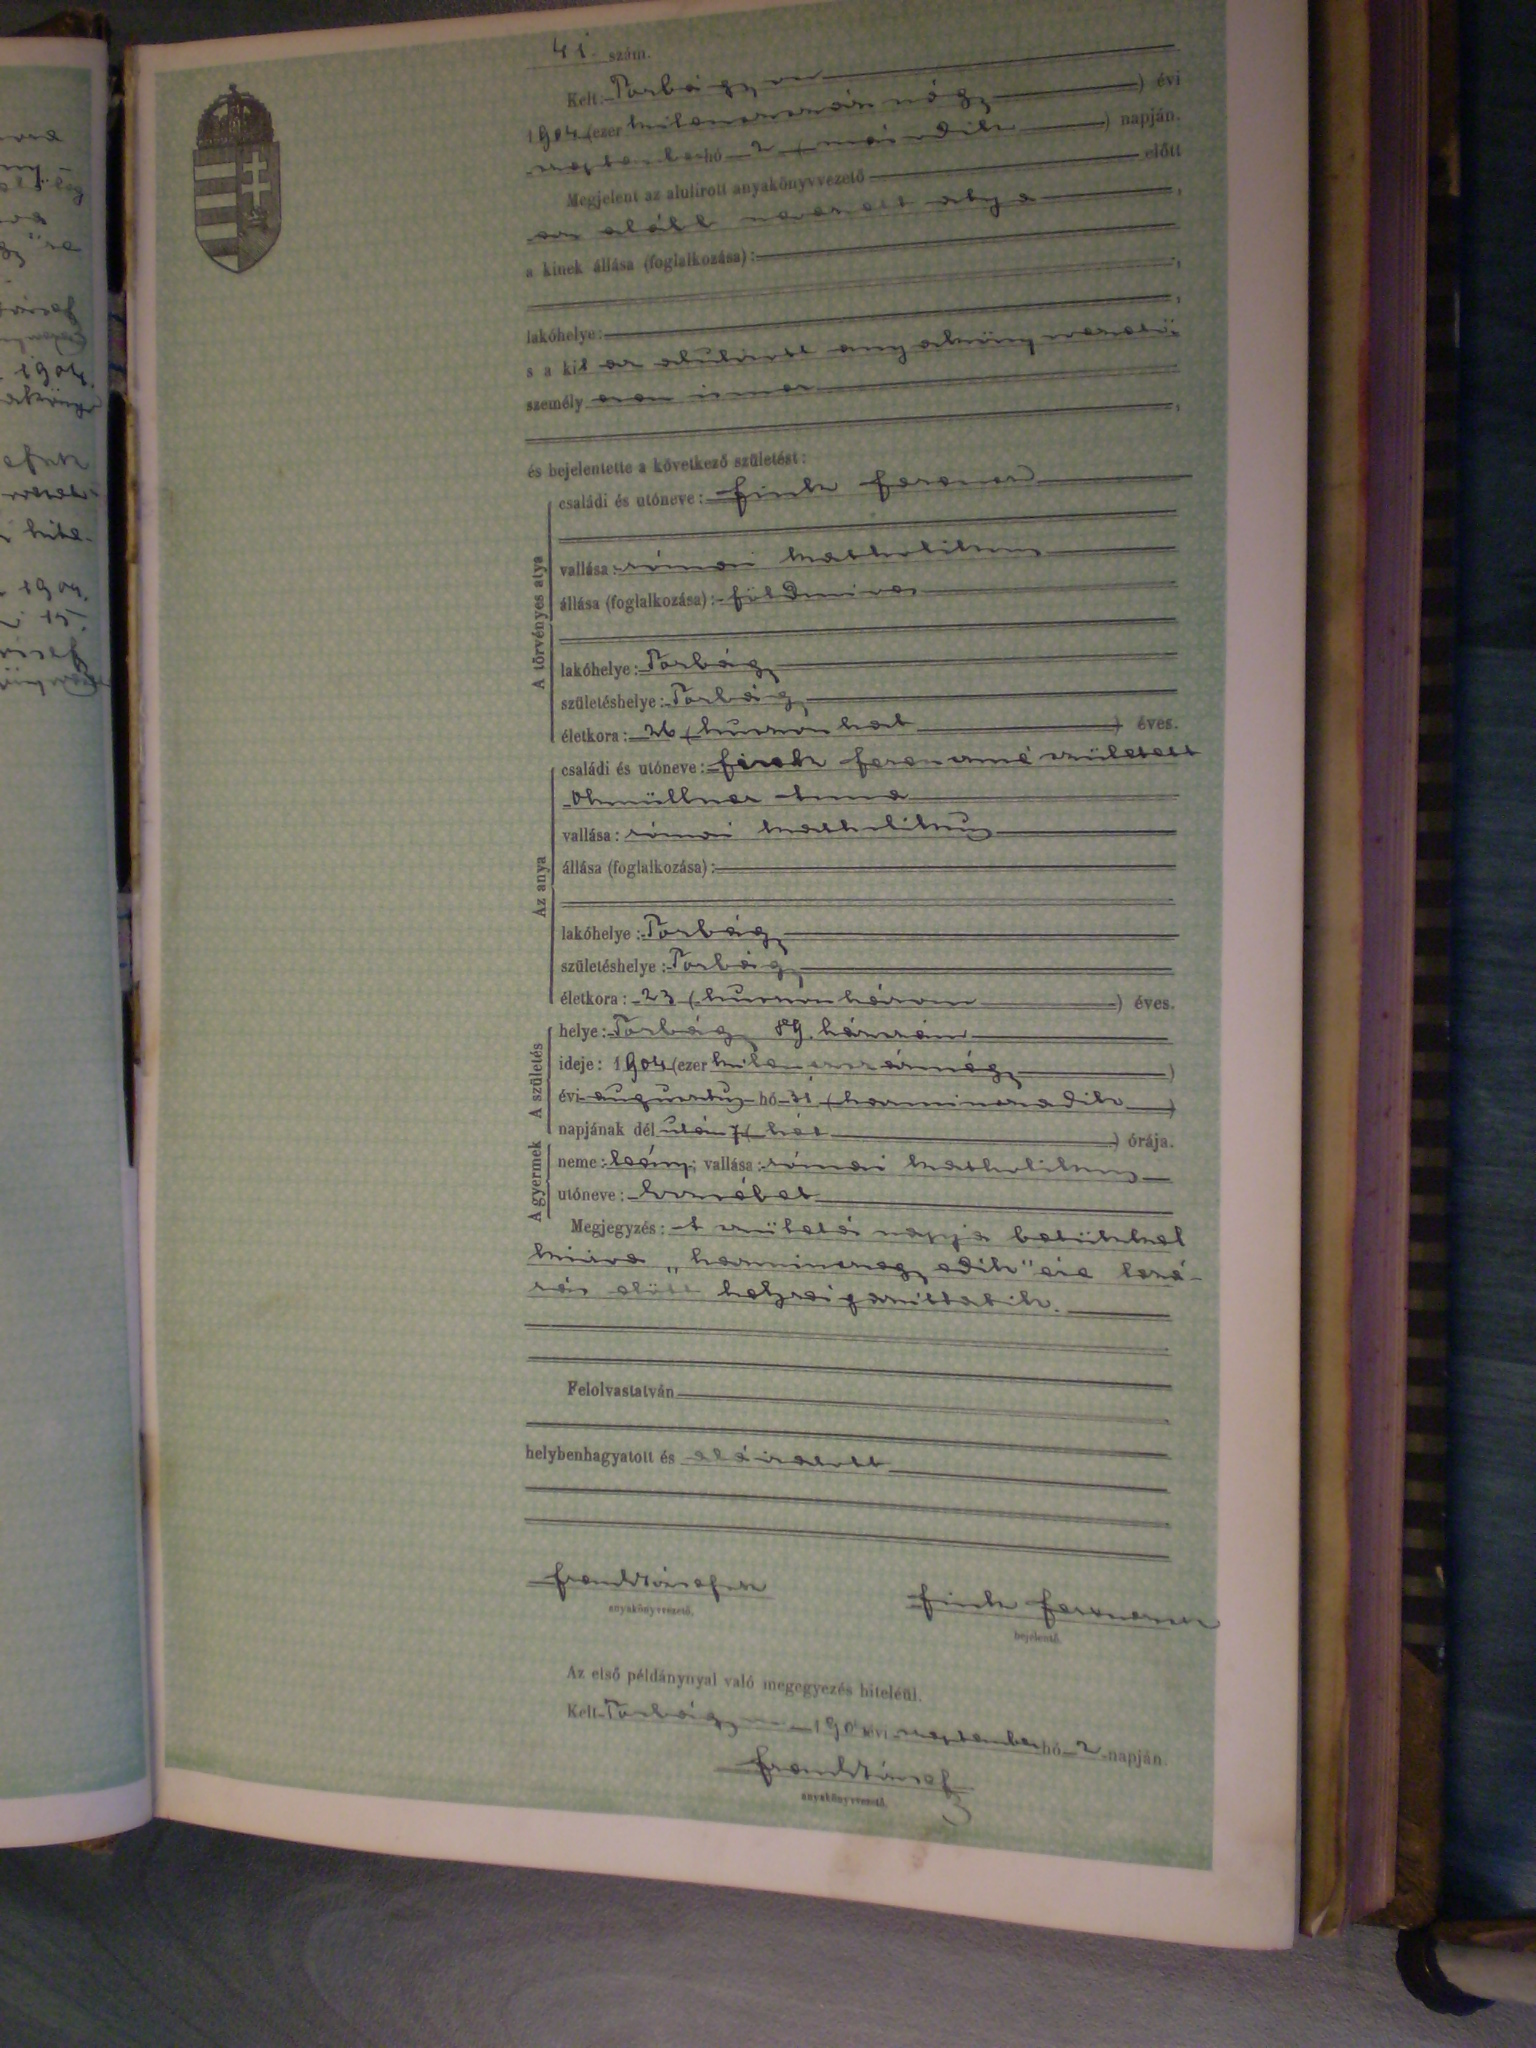 41. szám.
Kelt: Torbágyon ) évi
1904 (ezer kilenczszáz négy
szeptember hó 2 (második ) napján.
Megjelent az alulirott anyakönyvvezető előtt
az alább nevezett atya ,
a kinek állása (foglalkozása):
,
lakóhelye: ,
s a kit az alulirott anyakönyvvezető
személyesen ismer
,
és bejelentette a következő születést:
A törvényes atya
családi és utóneve: Fink Ferencz
vallása: római katholikus
állása (foglalkozása): földmives
lakóhelye: Torbágy
születéshelye: Torbágy
életkora: 26 (huszonhat ) éves.
Az anya
családi és utóneve: Finek Ferenczné született
Ohmüllner Anna
vallása: római katholikus
állása (foglalkozása):
lakóhelye: Torbágy
születéshelye: Torbágy
életkora: 23 (huszonhárom ) éves.
A születés
helye: Torbágy 89. házszám
ideje: 1904 (ezer kilenczszáznégy )
évi augusztus hó 31 (harminczadik )
napjának dél után 7 ( hét ) órája.
A gyermek
neme: leány; vallása: római katholikus
utóneve: Erzsébet
Megjegyzés: A születés napja betükkel
kiirva „harminczegyedik" ére lezá-
rás előtt helyreigazittatik.
Felolvastatván
helybenhagyatott és aláiratott
anyakönyvvezető.
Fink Ferencz
bejelentő.
Az első példánynyal való megegyezés hiteléül.
Kelt Torbágy 1904 évi szeptember hó 2 napján.
József
anyakönyvvezető.